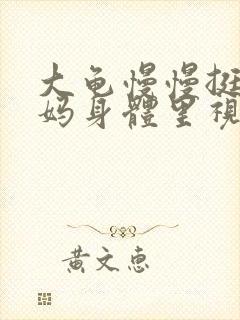 大龟慢慢挺
妈身體里視
黄文惠